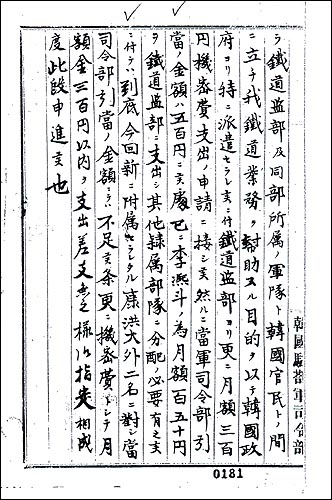 ラ鐵道監部及同部所属ノ軍隊ト韓國官民トノ間
ニ立チ我鐵道業務ヲ幇助スル目的ヲ以テ韓國政
府ヨリ特ニ派遣セラレ候ニ付鐵道監部ヨリ更ニ月額三百
円機密費支出ノ申請ニ接シ候然ルニ當軍司令部引
當ノ金額ハ五百円ニ候處已ニ李熙斗ノ為月額百五十円
ヲ鐵道監部ニ支出シ其他隷属部隊ニ分配ノ必要有之候
ニ付到底今回新ニ附属セラレタル康洪大外二名ニ對シ當
司令部引當ノ金額ニテハ不足候条更ニ機密費トシテ月
額金三百円以内ヲ支出差支無之様御指令相成
度此段申進候也
韓國駐箚軍司令部
0181